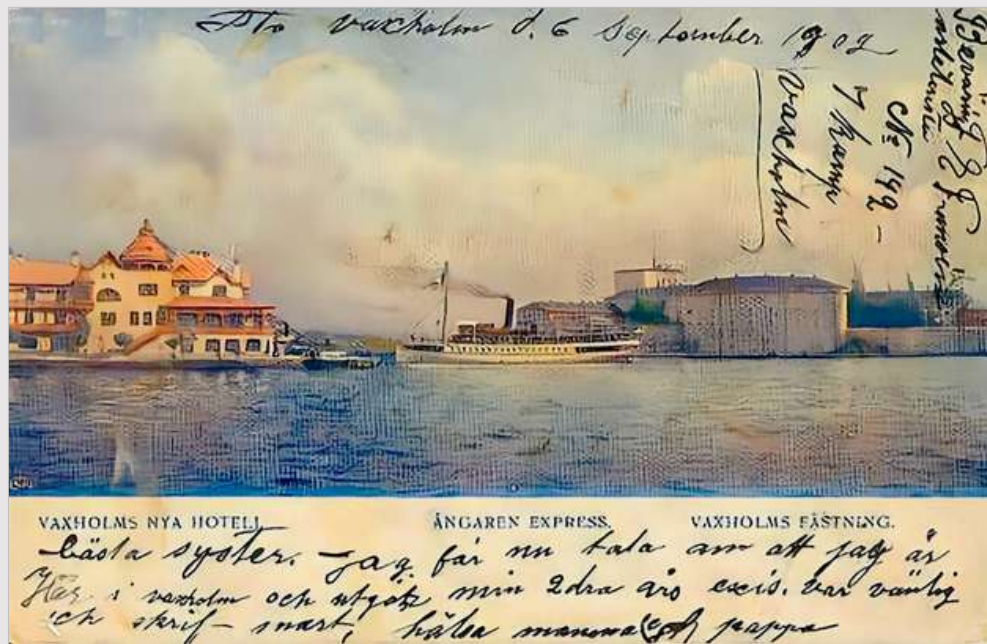 vaxholm d. 6 September 1902
Beväring
No 192 -
7 komp
Vaxholm
VAXHOLMS NYA HOTELL.
ÅNGAREN EXPRESS.
VAXHOLMS FÄSTNING.
bästa syster. - jag får nu tala om att jag är
Här i vaxholm och utgör min 2dra års excis. var vänlig
och skrif - snart, hälsa mamma och pappa